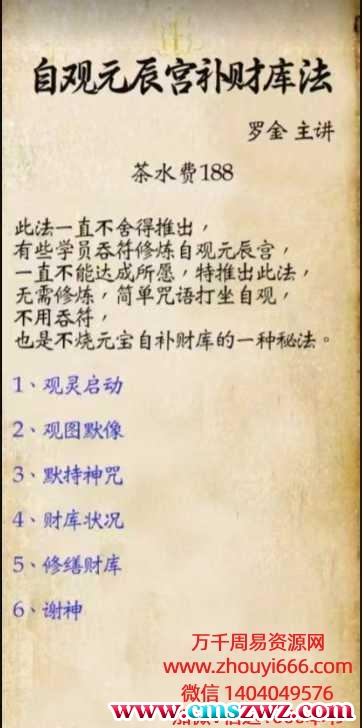 自观元辰宫补财库法
罗金 主讲
茶水费188
此法一直不舍得推出，
有些学员吞符修炼自观元辰宫，
一直不能达成所愿，特推出此法，
无需修炼，简单咒语打坐自观，
不用吞符，
也是不烧元宝自补财库的一种秘法。
1、观灵启动
2、观图默像
3、默持神咒
4、财库状况
5、修缮财库
6、谢神
万千周易资源网
www.zhouyi666.com
微信 1404049576
www.cmszwz.com